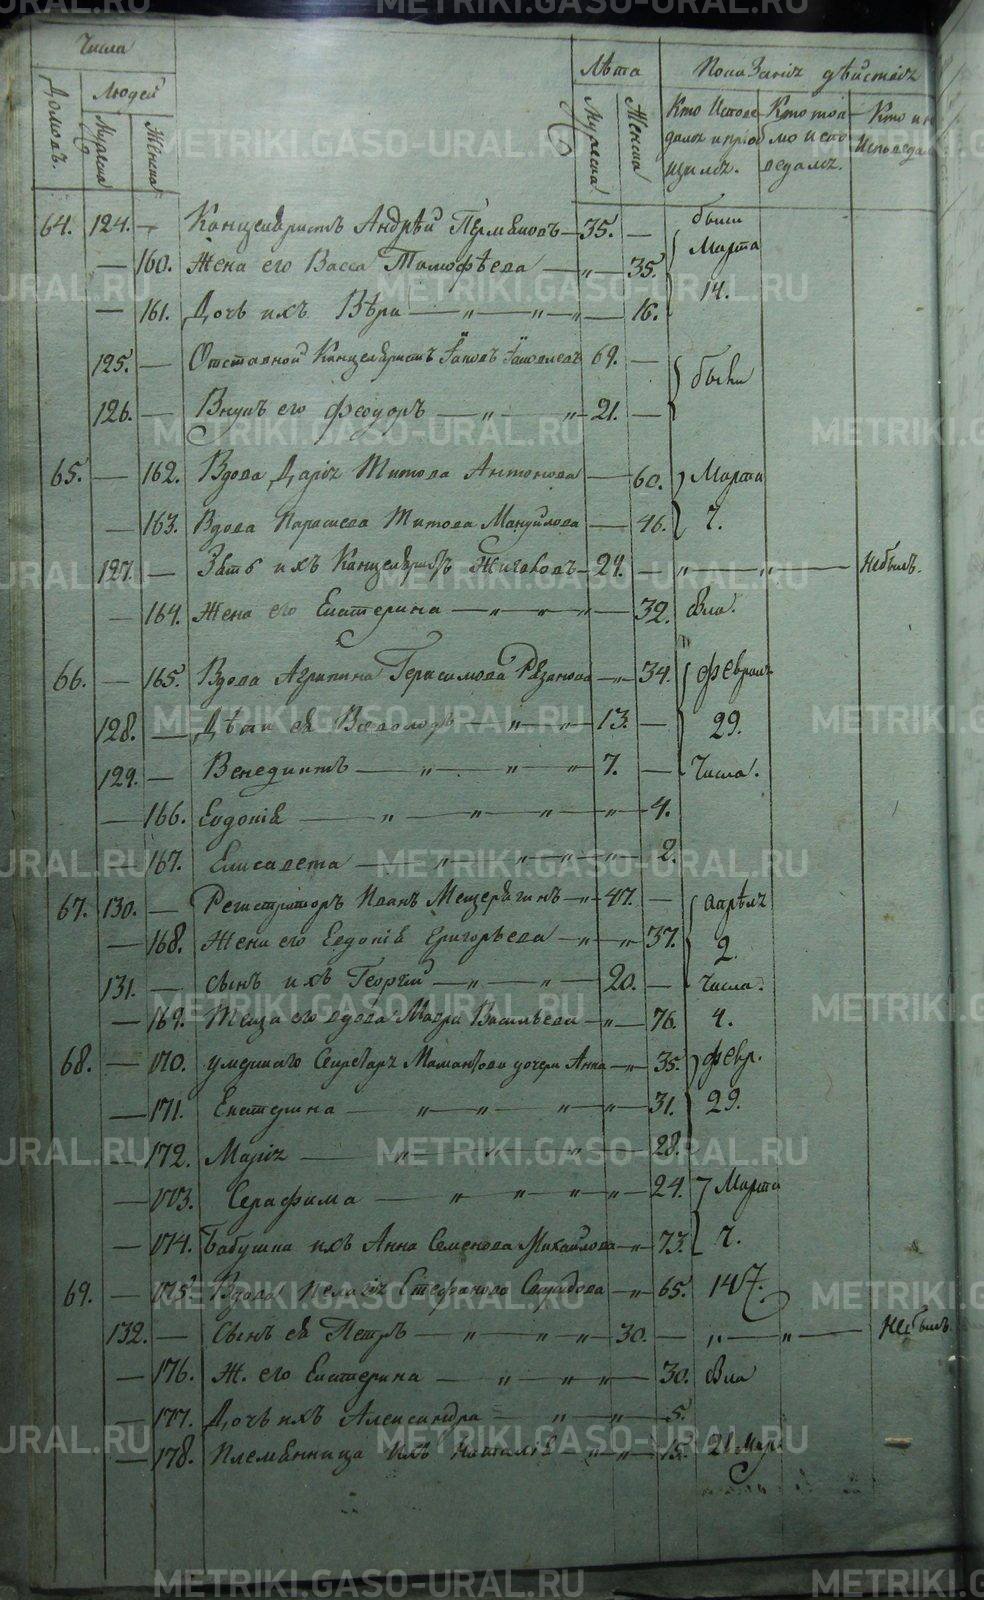 Числа
Домовъ.
Людей
Мужеска
Женска
Лѣта
Мужеска
Женска
Показаніе дѣйствія
Кто Исповѣдался и пріобщился.
Кто токмо исповедался.
Кто и не Исповеда
64. 124. — Канцеляристъ Андрѣй Пермяковъ — 35. — были
— 160. Жена его Васса Тимофѣева — „ — 35. Марта
— 161. Дочь ихъ Вѣра — „ — „ — 16. 14.
125. — Отставной Канцеляристъ Іаковъ 69. —
126. — Внукъ его Феодоръ — „ — „ — 21. — были
65. — 162. Вдова Дарія Титова Антонова — 60. Марта
— 163. Вдова Парасева Титова Мануйлова — 46. 7.
127. — Зять ихъ Канцеляристъ — 24. — „ — „ — Небылъ.
— 164. Жена его Екатерина — „ — „ — „ — 32.
66. — 165. Вдова Агрипина Герасимова Рѣзанова — „ — 34. февраля
128. — Дѣти ея Всеволодъ — „ — „ — 13. — 29.
129. — Венедиктъ — „ — „ — „ 7. — Числа.
— 166. Евдокія — „ — „ — „ — „ — 4.
— 167. Елисавета — „ — „ — „ — „ — 2.
67. 130. — Регистраторъ Иванъ Мещерягинъ — „ — 47. — Апрѣля
— 168. Жена его Евдокія Григорьева — „ — „ — 37. 2.
131. — сынъ ихъ Георгій — „ — „ — 20. — Числа.
— 169. Теща его вдова Мавра Васильева — „ — 76. 4.
68. — 170. умершаго Секретаря дочери Анна — „ — 35. февр.
— 171. Екатерина — „ — „ — „ — „ — 31. 29.
— 172. Марія — „ — „ — „ — 28.
— 173. Серафима — „ — „ — „ — „ — 24. Марта
— 174. Бабушка ихъ Анна Семенова Михайлова — „ — 73. 7.
69. — 175. Вдова Пелагія Стефанова Свиридова — „ — 65. 14
132. — Сынъ ея Петръ — „ — „ — „ — 30. — „ — „ — Небылъ.
— 176. Ж. его Екатерина — „ — „ — „ — 30.
— 177. Дочь ихъ Александра — „ — „ — 5.
— 178. Племянница ихъ Наталія — „ — „ — 15. 21 Мар.
METRIKI.GASO-URAL.RU